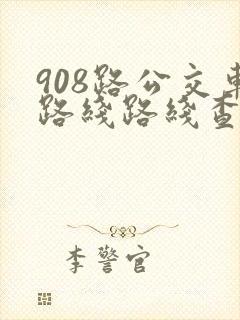 908路公交車
路綫路綫查
李警官